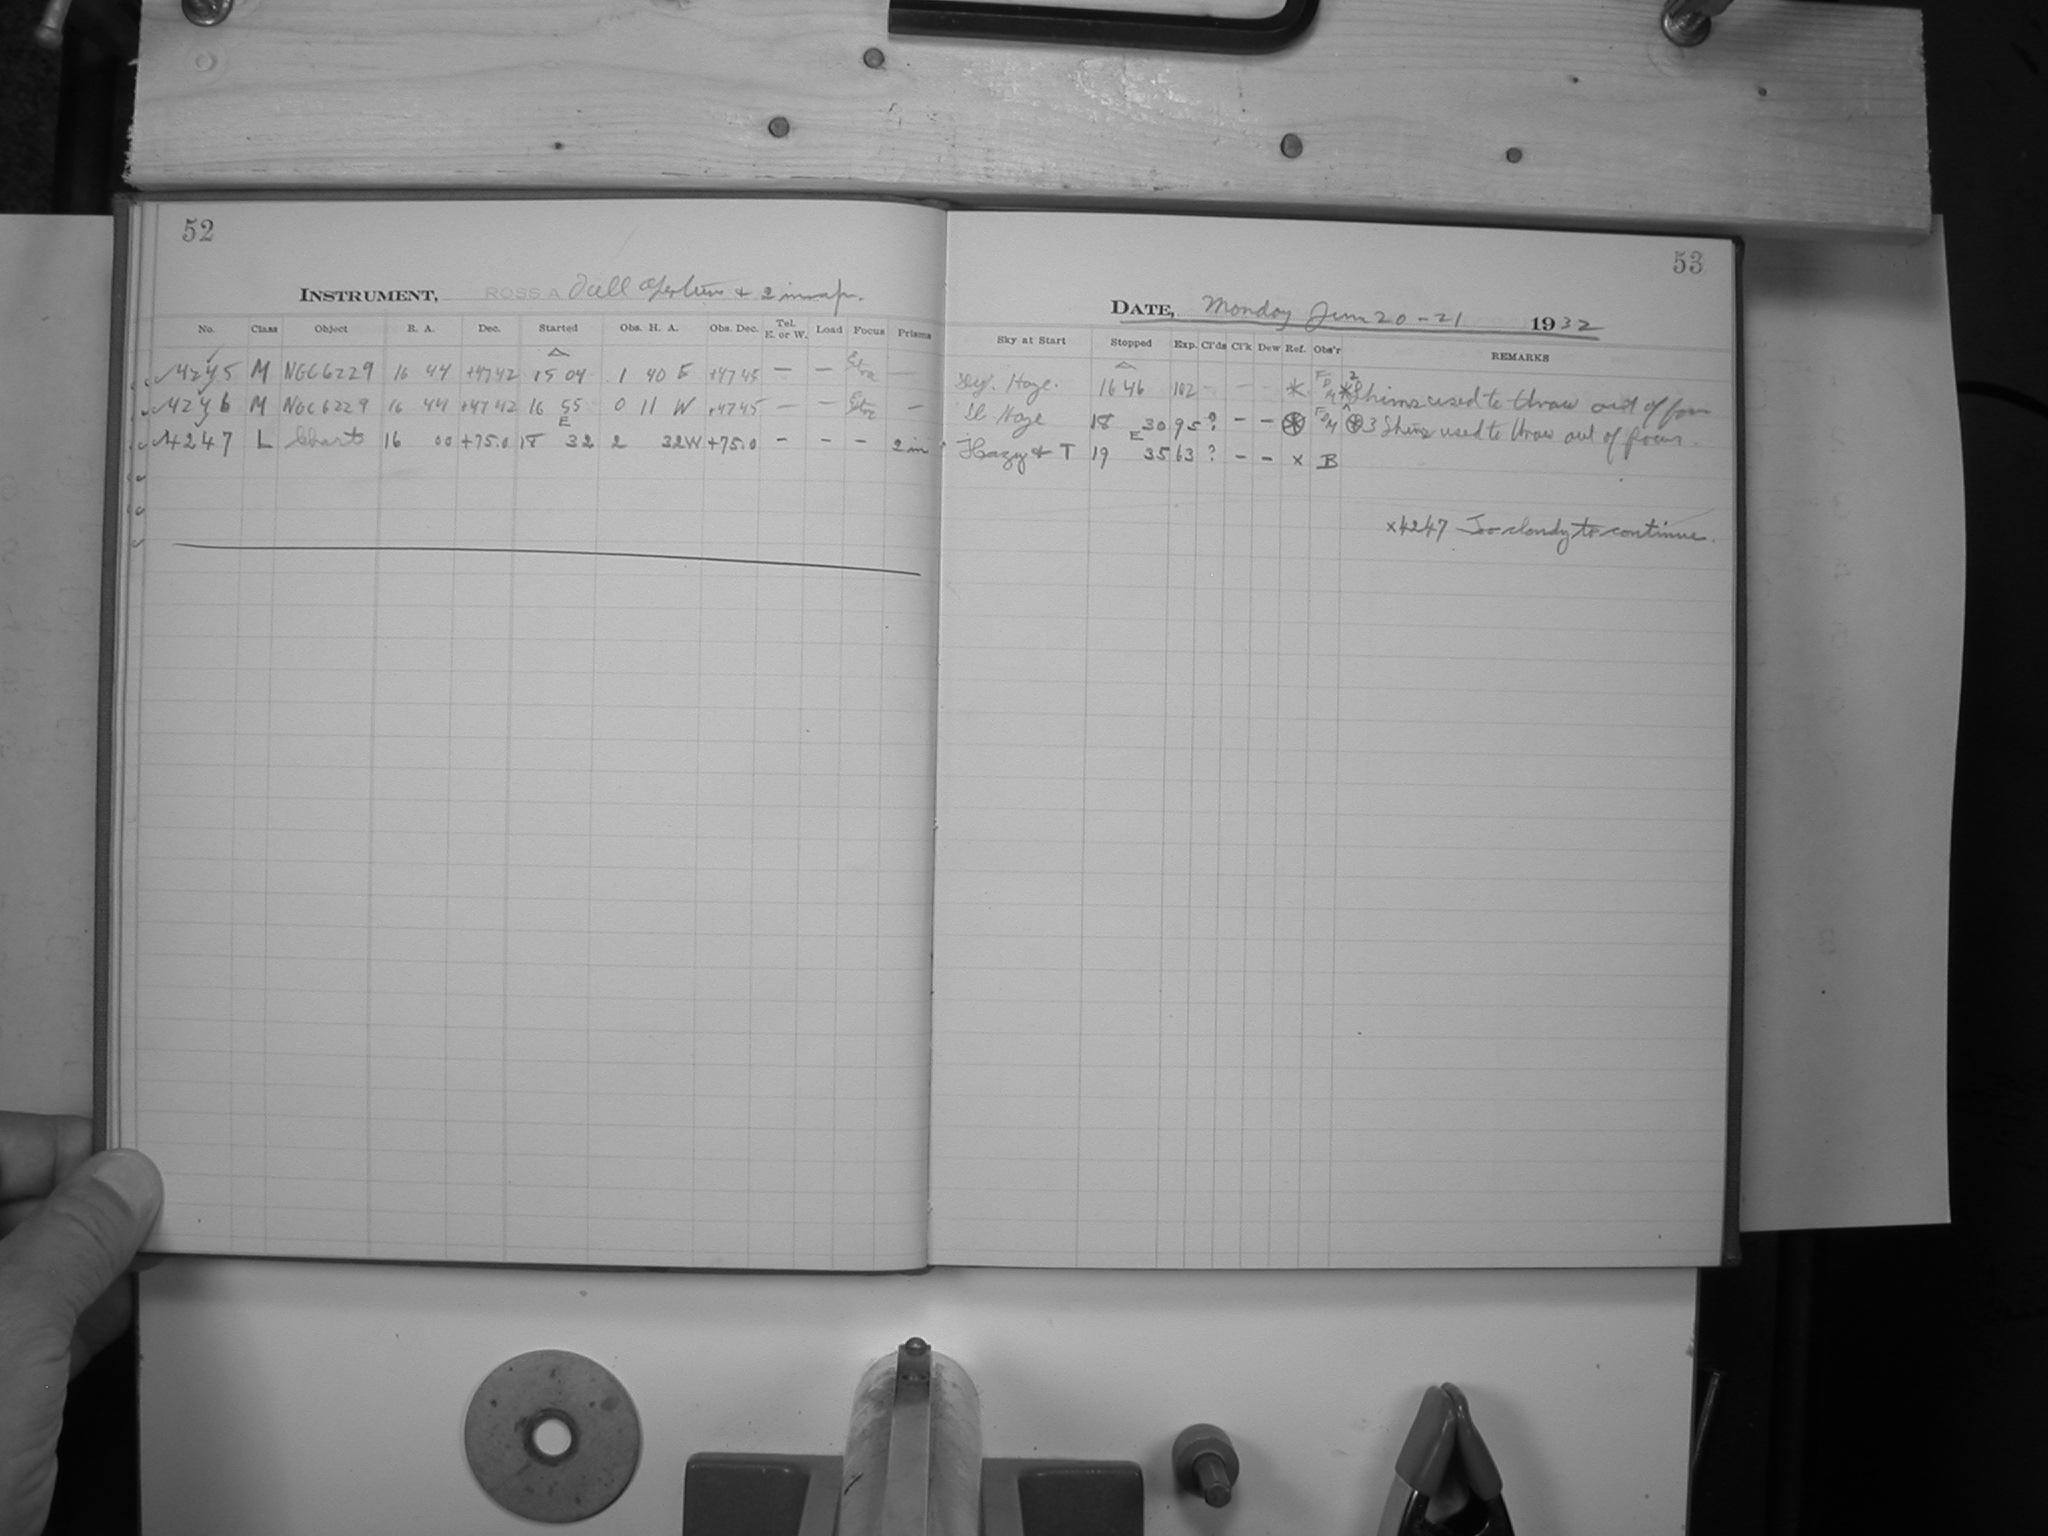 52
INSTRUMENT, ROSS A Full Aperture + 2 in. ap.
No. Class Object R. A. Dec. Started Obs. H. A. Obs. Dec. Tel. E. or W. Load Focus Prisms
4245 M NGC 6229 16 44 +47 42 15 04 1 40 E +47 45 — — Extra —
4246 M NGC 6229 16 44 +47 42 16 55 0 11 W +47 45 — — Extra —
E
4247 L Charts 16 00 +75.0 18 32 2 32W +75.0 - - - 2 in
53
DATE, Monday June 20-21 1932
Sky at Start Stopped Exp. Cl'ds Cl'k Dew Ref. Obs'r REMARKS
Haze. 16 46 102 - - - * 2 Shims used to throw out of focus
Haze 18 30 95 ? - - ⊛ ⊛ 3 Shims used to throw out of focus.
E
Hazy & T 19 35 63 ? - - x B
x4247 Too cloudy to continue.